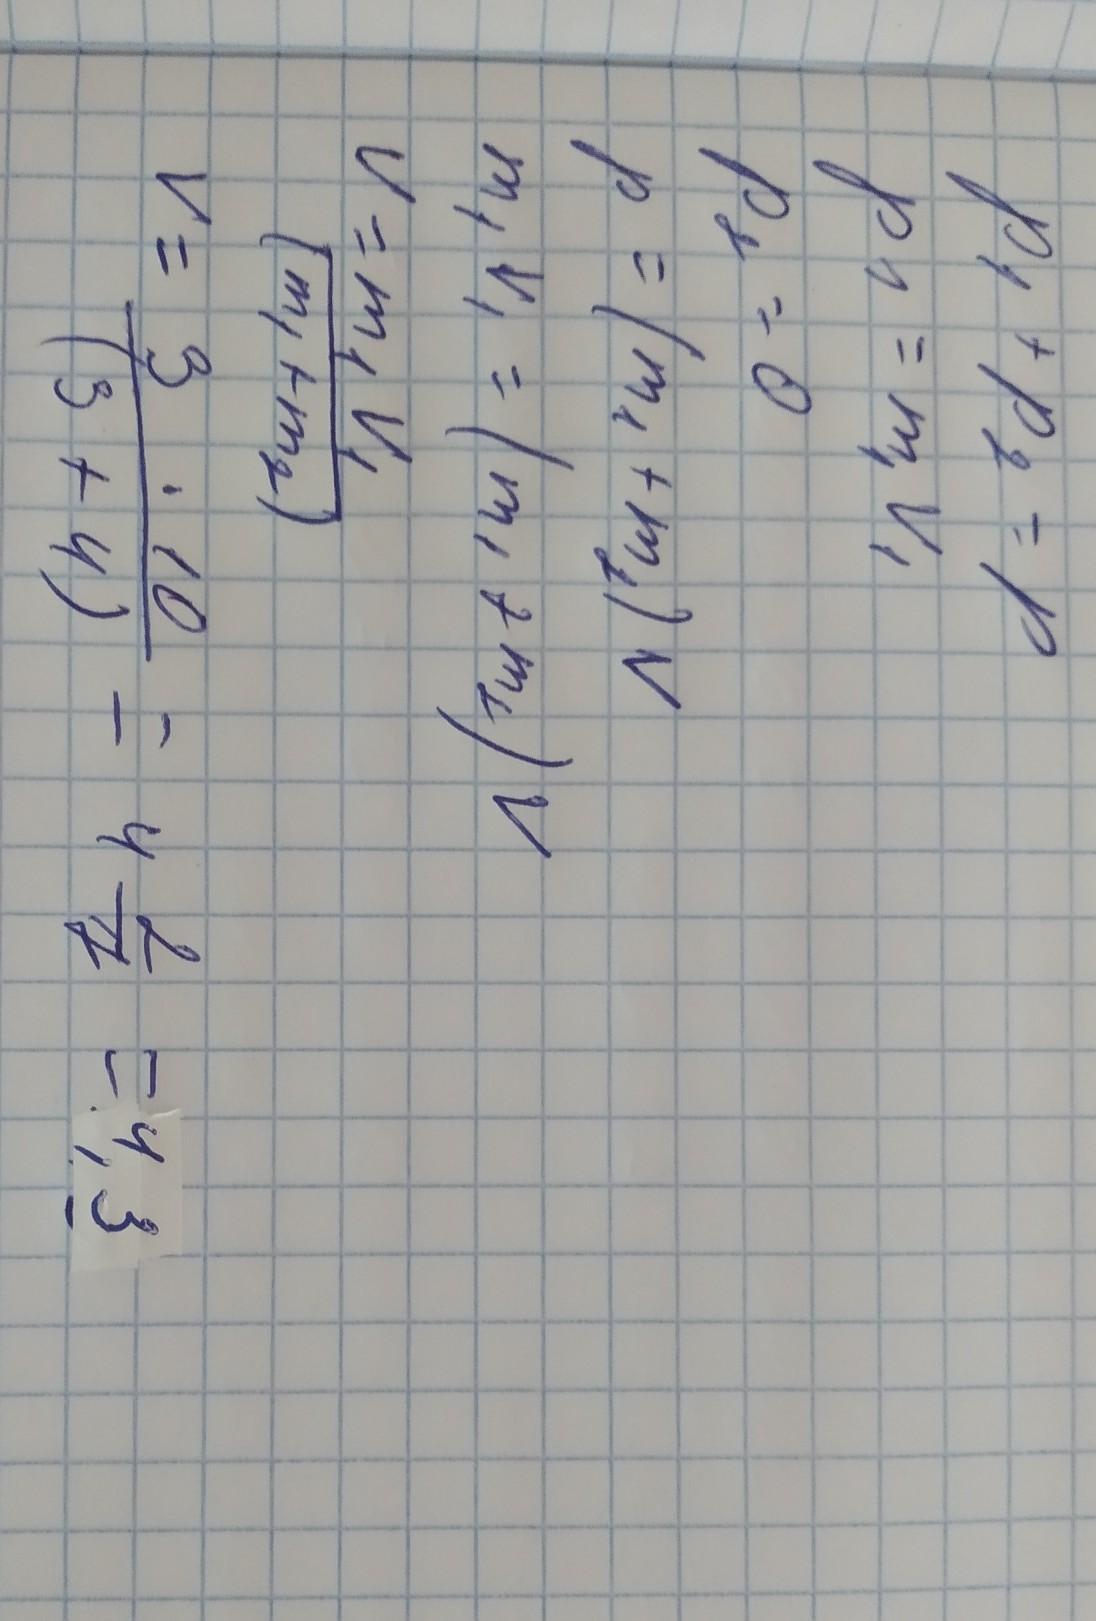 p₁ + p₂ = p
p₁ = m₁ v₁
p₂ = 0
p = (m₁ + m₂) v
m₁ v₁ = (m₁ + m₂) v
v = m₁ v₁ / (m₁ + m₂)
v = 3 · 10 / (3 + 4) = 4 2/7 = 4,3